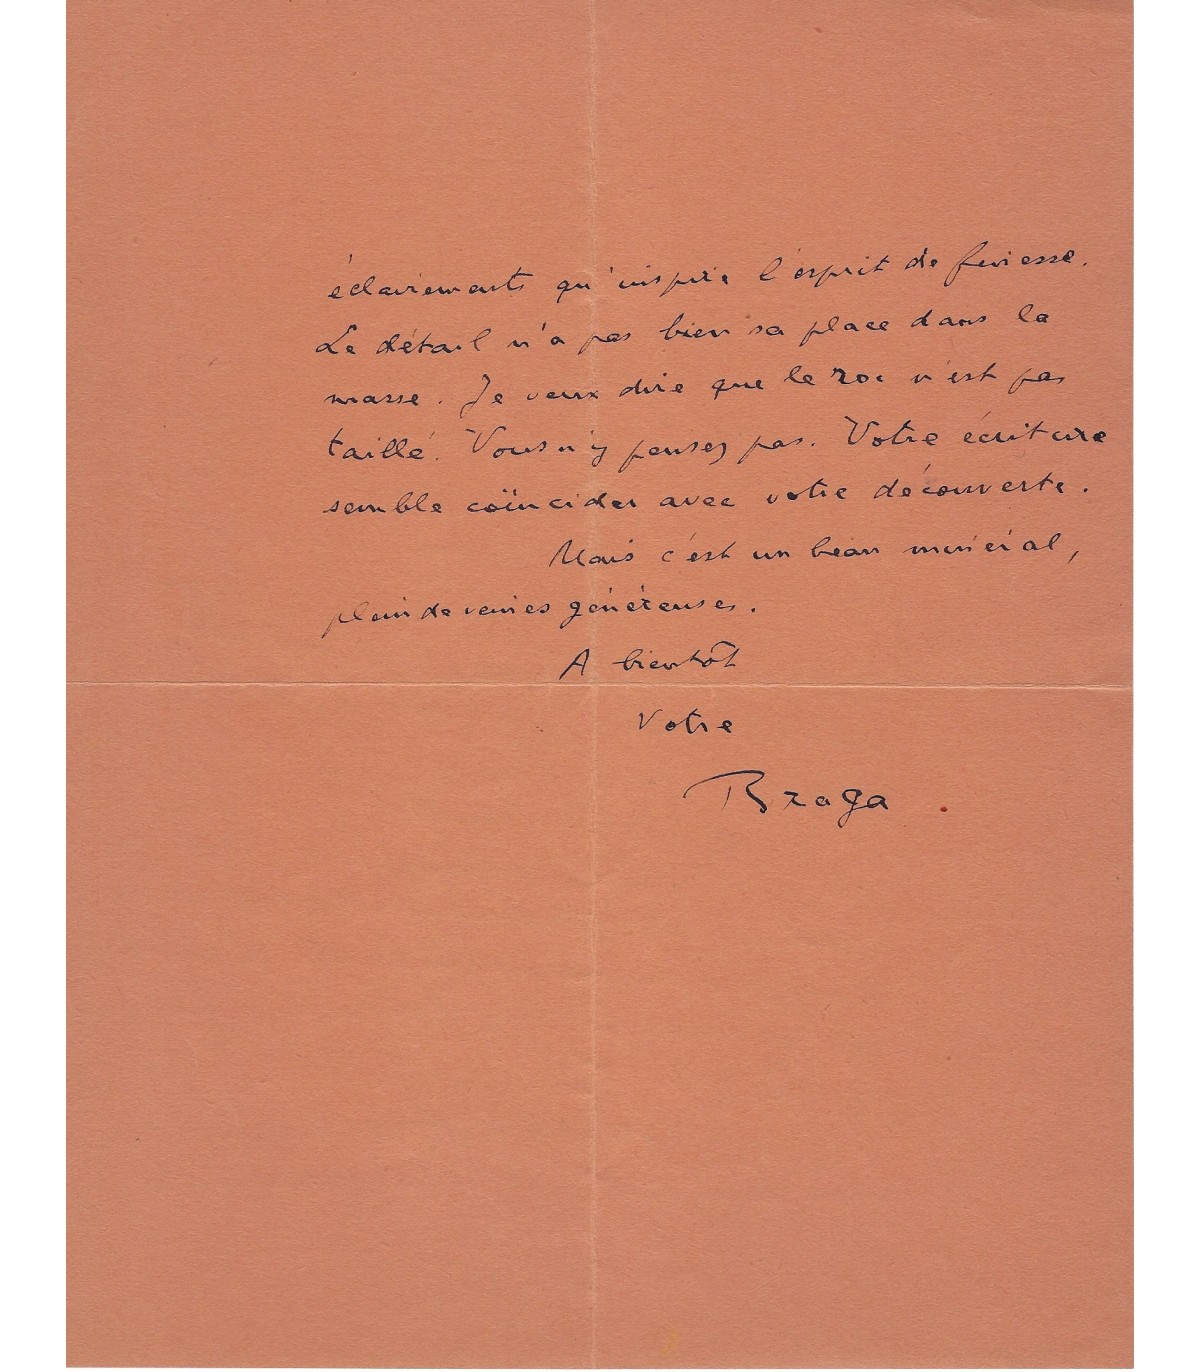 éclairements qu'inspire l'esprit de finesse.
Le détail n'a pas bien sa place dans la
masse. Je veux dire que le roc n'est pas
taillé. Vous n'y pensez pas. Votre écriture
semble coïncider avec votre découverte.
Mais c'est un beau minéral,
plein de veines généreuses.
A bientôt
Votre
Braga